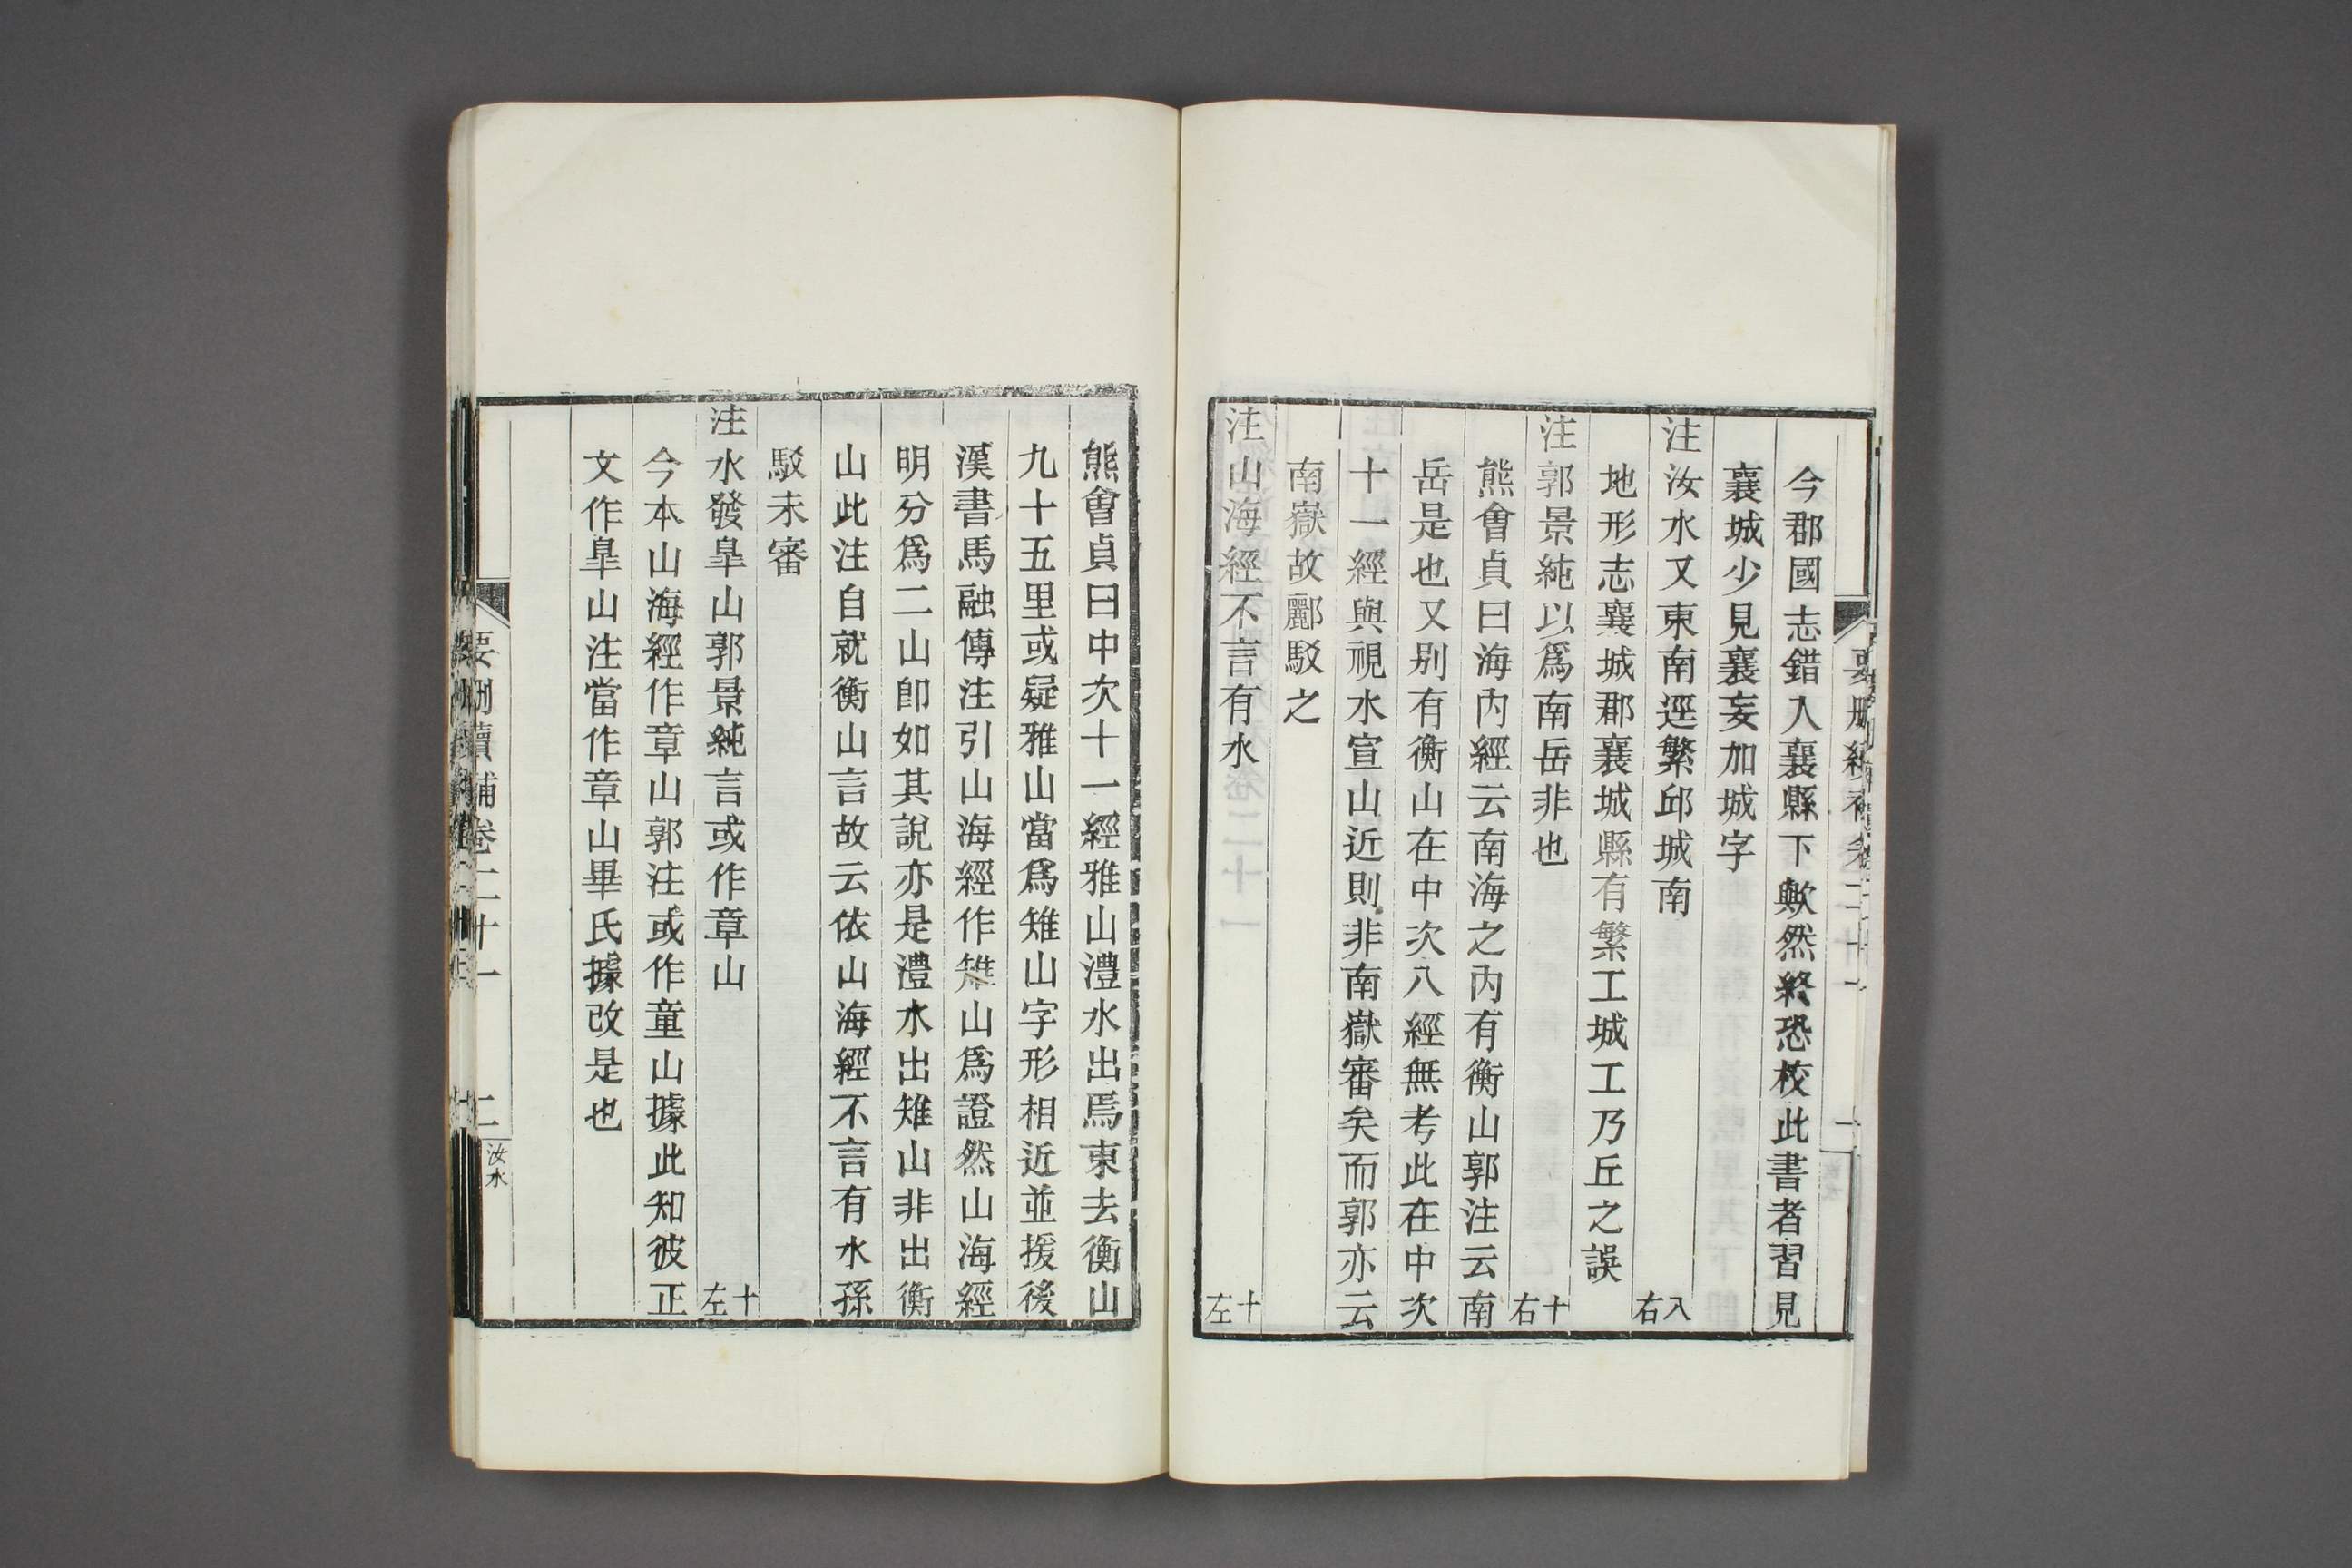 今郡國志錯入襄縣下歟然終恐校此書者習見
襄城少見襄妄加城字
注汝水又東南逕繁邱城南 八右
地形志襄城郡襄城縣有繁工城工乃丘之誤
注郭景純以爲南岳非也 十右
熊會貞曰海內經云南海之內有衡山郭注云南
岳是也又別有衡山在中次八經無考此在中次
十一經與視水宣山近則非南嶽審矣而郭亦云
南嶽故酈駁之
注山海經不言有水 十左
熊會貞曰中次十一經雅山澧水出焉東去衡山
九十五里或疑雅山當爲雉山字形相近並援後
漢書馬融傳注引山海經作雉山爲證然山海經
明分爲二山卽如其說亦是澧水出雉山非出衡
山此注自就衡山言故云依山海經不言有水孫
駁未審
注水發皐山郭景純言或作章山 十左
今本山海經作章山郭注或作童山據此知彼正
文作皐山注當作章山畢氏據改是也
要刪續補卷二十一 二 汝水